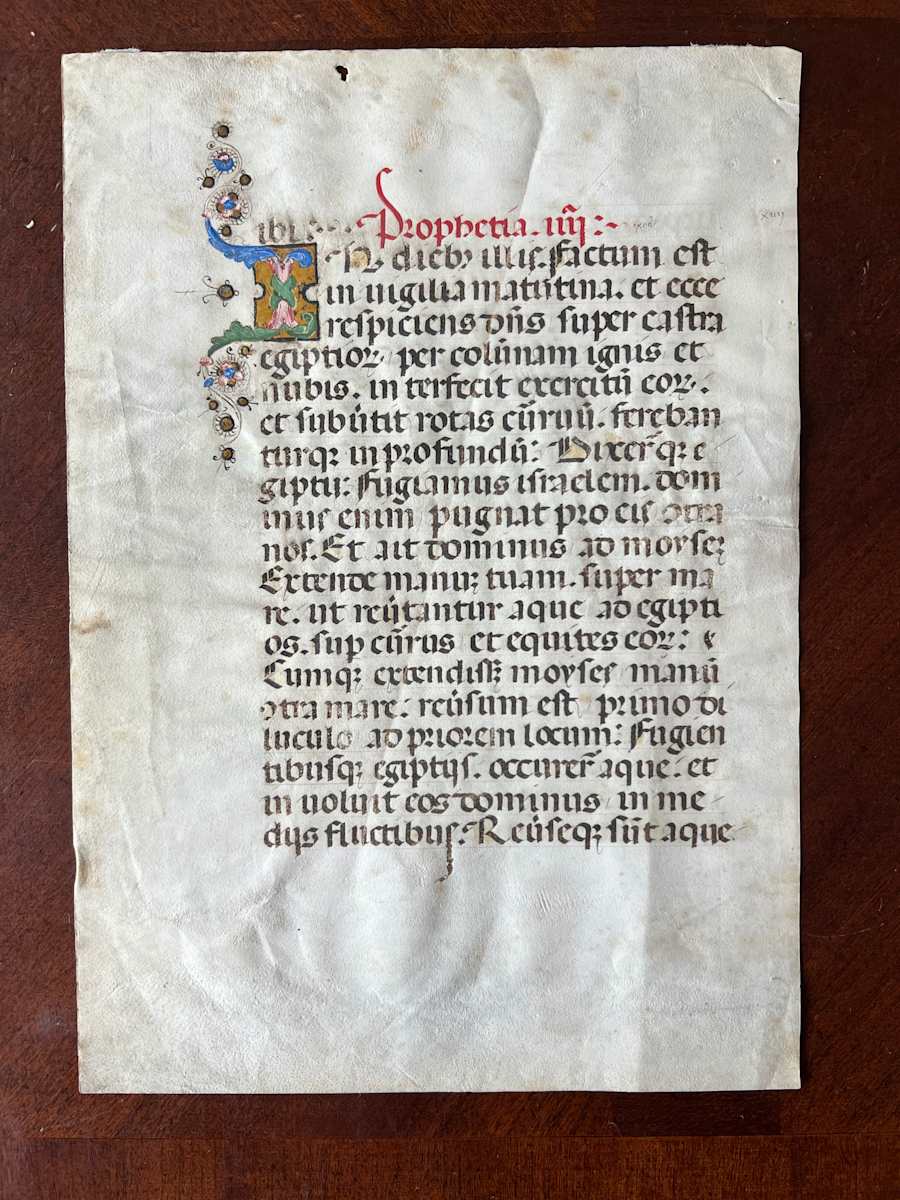 ibi : Prophetia. iiij :
IN dieb9 illis. Factum est
in uigilia matutina. et ecce
respiciens dñs super castra
egiptioꝝ. per colũnam ignis et
nubis. in terfecit exercitũ eoꝝ.
et subũtit rotas cũruũ. fereban
turqꝫ in profundũ: Dixer̃qꝫ e
giptij: Fugiamus israelem. dom
inus enim pugnat pro eis ↄtra
nos. Et ait dominus ad moyseꝫ
Extende manuꝫ tuam. super ma
re. ut reũtantur aque ad egipti
os. sup cũrus et equites eoꝝ: &
Cumqꝫ extendissꝫ moyses manũ
ↄtra mare: reũsum est primo di
luculo ad priorem locum: Fugien
tibusqꝫ egiptijs. occurer̃ aque. et
in uoluit eos dominus in me
dijs fluctibus. Reũseqꝫ sũt aque